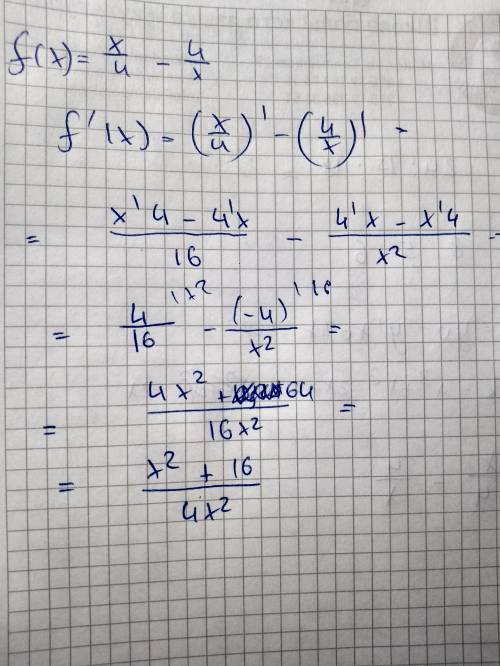 f(x) = x/4 - 4/x
f'(x) = (x/4)' - (4/x)' =
= (x'4 - 4'x)/16 - (4'x - x'4)/x² =
= 4/16 |x² - (-4)/x² |16 =
= (4x² + 64)/16x² =
= (x² + 16)/4x²